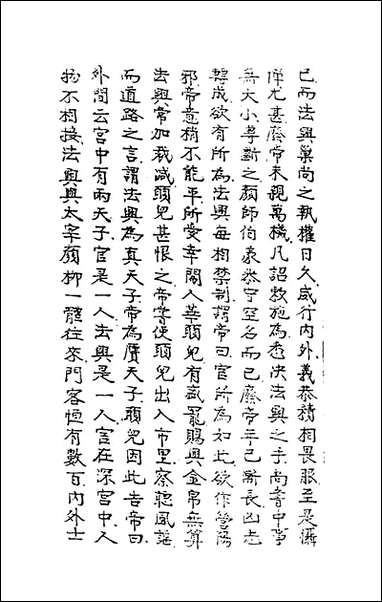 已而法興巢尚之執權日久威行内外義恭積相畏服至是懾
憚尤甚廢帝未親萬機凡詔敕施為悉決法興之手尚書中事
無大小專斷之顏師伯義恭守空名而已廢帝年已漸長凶志
轉成欲有所為法興每相禁制謂帝曰官所為如此欲作營陽
邪帝意稍不能平所愛幸閹人華願兒有盛寵賜與金帛無算
法興常加裁減願兒甚恨之帝嘗使願兒出入市里察聽風謡
而道路之言謂法興為真天子帝為贗天子願兒因此告帝曰
外間云宫中有兩天子官是一人法興是一人官在深宫中人
物不相接法興與太宰顏柳一體往來門客恒有數百内外士